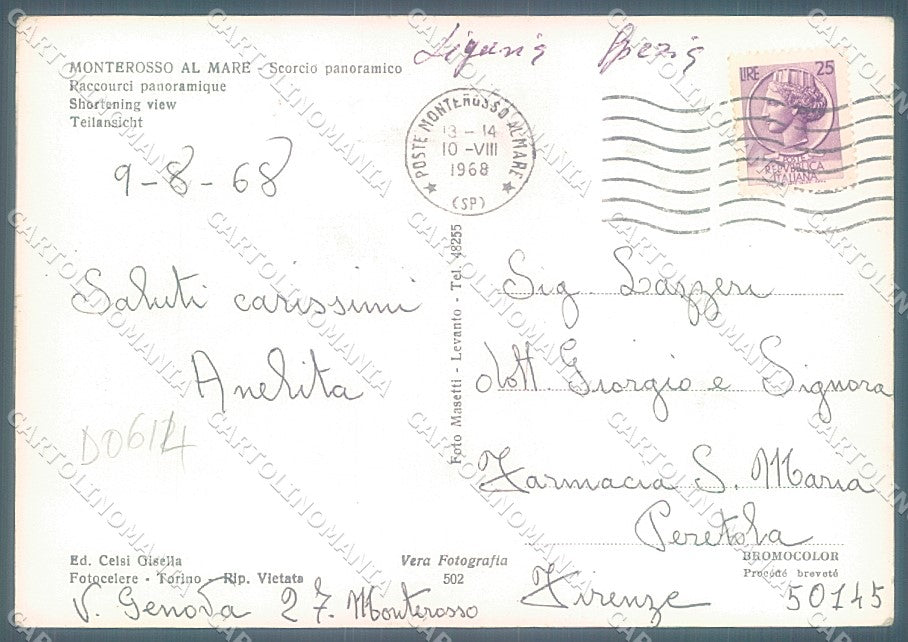 Liguria Spezia
MONTEROSSO AL MARE - Scorcio panoramico
Raccourci panoramique
Shortening view
Teilansicht
POSTE MONTEROSSO AL MARE
13 - 14
10 - VIII
1968
(SP)
LIRE 25
POSTE
REPVBBLICA
ITALIANA
9-8-68
Saluti carissimi
Anelita
D0614
Foto Masetti - Levanto - Tel. 48255
Sig. Lazzeri
dott. Giorgio e Signora
Farmacia S. Maria
Peretola
Firenze 50145
Ed. Celsi Gisella
Fotocelere - Torino - Rip. Vietata
Vera Fotografia
502
BROMOCOLOR
Procédé breveté
V. Genova 27. Monterosso
CARTOLINOMANIA